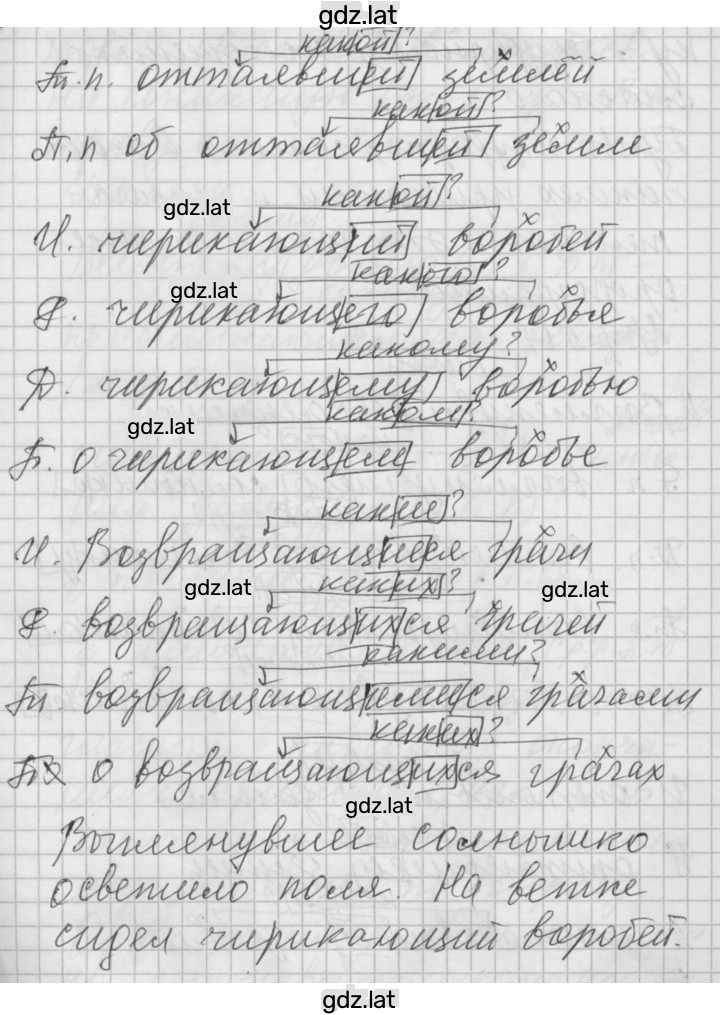 gdz.lat
какой?
Тп.п. оттаявшей землёй
какой?
П.п об оттаявшей земле
какой?
gdz.lat
И. чирикающий воробей
какого?
gdz.lat
Р. чирикающего воробья
какому?
Д. чирикающему воробью
каком?
gdz.lat
П. о чирикающем воробье
какие?
И. Возвращающиеся грачи
каких?
gdz.lat gdz.lat
Р. возвращающихся грачей
какими?
Тп возвращающимися грачами
каких?
о возвращающихся грачах
gdz.lat
Выглянувшее солнышко
осветило поля. На ветке
сидел чирикающий воробей.
gdz.lat